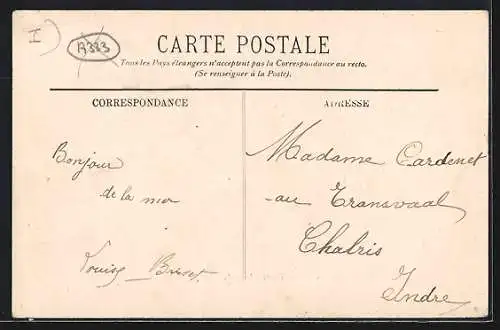 I
R383
CARTE POSTALE
Tous les Pays étrangers n'acceptent pas la Correspondance au recto.
(Se renseigner à la Poste).
CORRESPONDANCE
ADRESSE
Bonjour
de la mer
Louise
Madame Cardenet
au Transvaal
Chabris
Indre